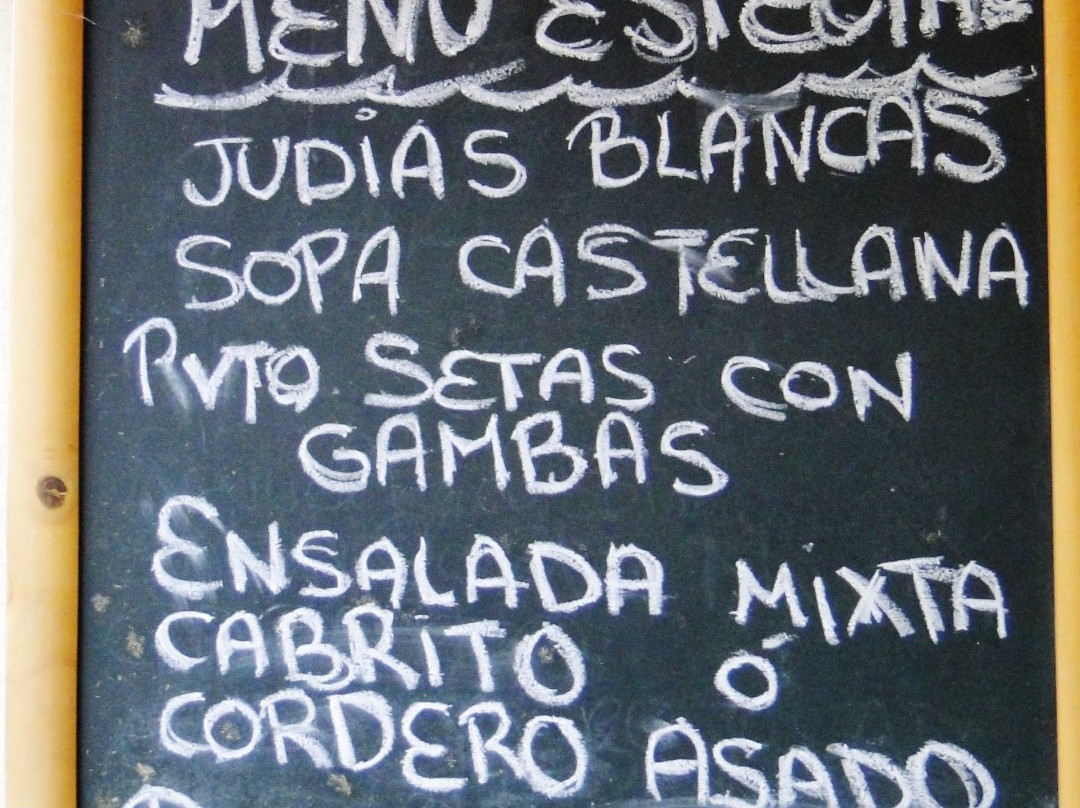 MENU ESPECIAL
JUDIAS BLANCAS
SOPA CASTELLANA
RVTO SETAS CON
GAMBAS
ENSALADA MIXTA
CABRITO Ó
CORDERO ASADO